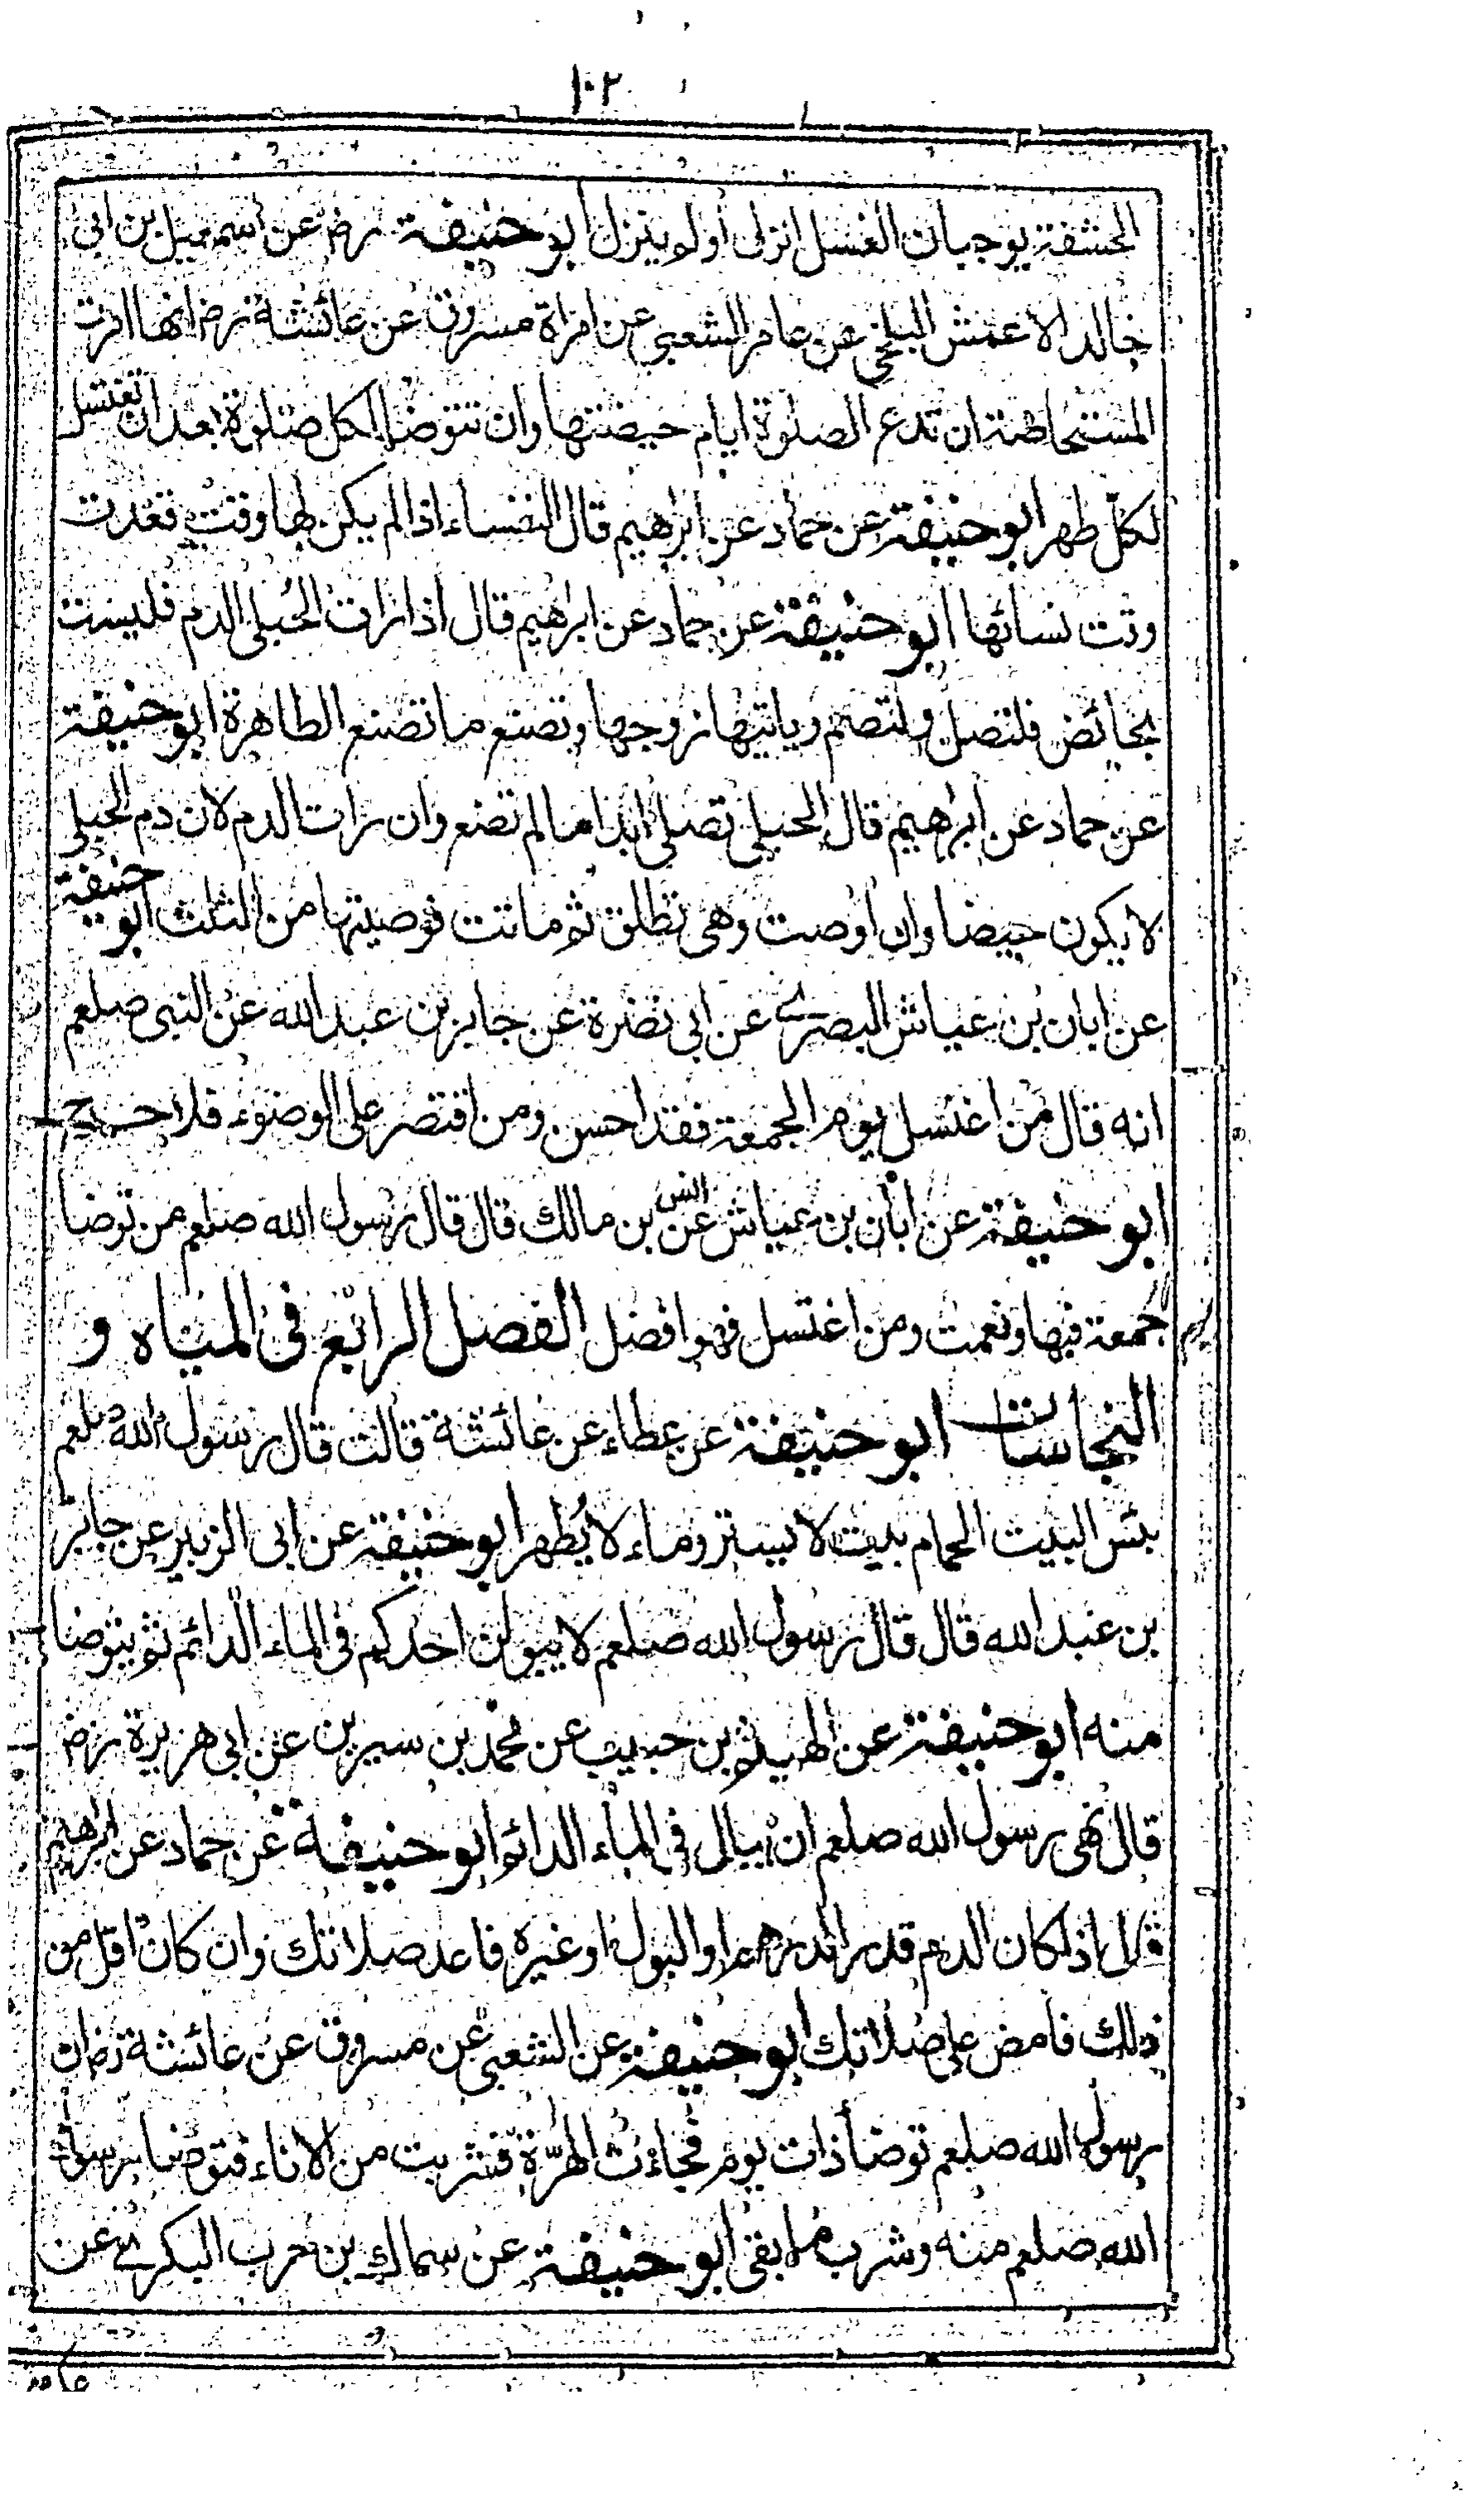 ١٠٢
الحشفة يوجبان الغسل انزل او لم ينزل ابو حنيفة رض عن اسمعيل بن ابى
خالد الاعمش البلخى عن عامر الشعبى عن امراة مسروق عن عائشة رض انها امرت
المستحاضة ان تدع الصلوة ايام حيضتها وان تتوضا لكل صلوة بعد ان تغتسل
لكل طهر ابو حنيفة عن حماد عن ابرهيم قال النفساء اذا لم يكن لها وقت قعدت
وقت نسائها ابو حنيفة عن حماد عن ابرهيم قال اذا رات الحبلى الدم فليست
بحائض فلتصل ولتصم وياتيها زوجها وتصنع ما تصنع الطاهرة ابو حنيفة
عن حماد عن ابرهيم قال الحبلى تصلى ابدا ما لم تضع وان رات الدم لان دم الحبلى
لا يكون حيضا وان اوصت وهى تطلق ثم ماتت فوصيتها من الثلث ابو حنيفة
عن ابان بن عياش البصرى عن ابى نضرة عن جابر بن عبد الله عن النبى صلعم
انه قال من اغتسل يوم الجمعة فقد احسن ومن اقتصر على الوضوء فلا حرج
ابو حنيفة عن ابان بن عياش عن انس بن مالك قال قال رسول الله صلعم من توضا
جمعة فبها ونعمت ومن اغتسل فهو افضل الفصل الرابع فى المياه و
النجاسات ابو حنيفة عن عطاء عن عائشة قالت قال رسول الله صلعم
بئس البيت الحمام بيت لا يستر وماء لا يُطهر ابو حنيفة عن ابى الزبير عن جابر
بن عبد الله قال قال رسول الله صلعم لا يبولن احدكم فى الماء الدائم ثم يتوضا
منه ابو حنيفة عن الهيثم بن حبيب عن محمد بن سيرين عن ابى هريرة رض
قال نهى رسول الله صلعم ان يبال فى الماء الدائم ابو حنيفة عن حماد عن ابرهيم
قال اذا كان الدم قدر الدرهم او البول او غيره فاعد صلاتك وان كان اقل من
ذلك فامض على صلاتك ابو حنيفة عن الشعبى عن مسروق عن عائشة رض ان
رسول الله صلعم توضأ ذات يوم فجاءت الهرّة فشربت من الاناء فتوضا رسول
الله صلعم منه وشرب ما بقى ابو حنيفة عن سماك بن حرب البكرى عن